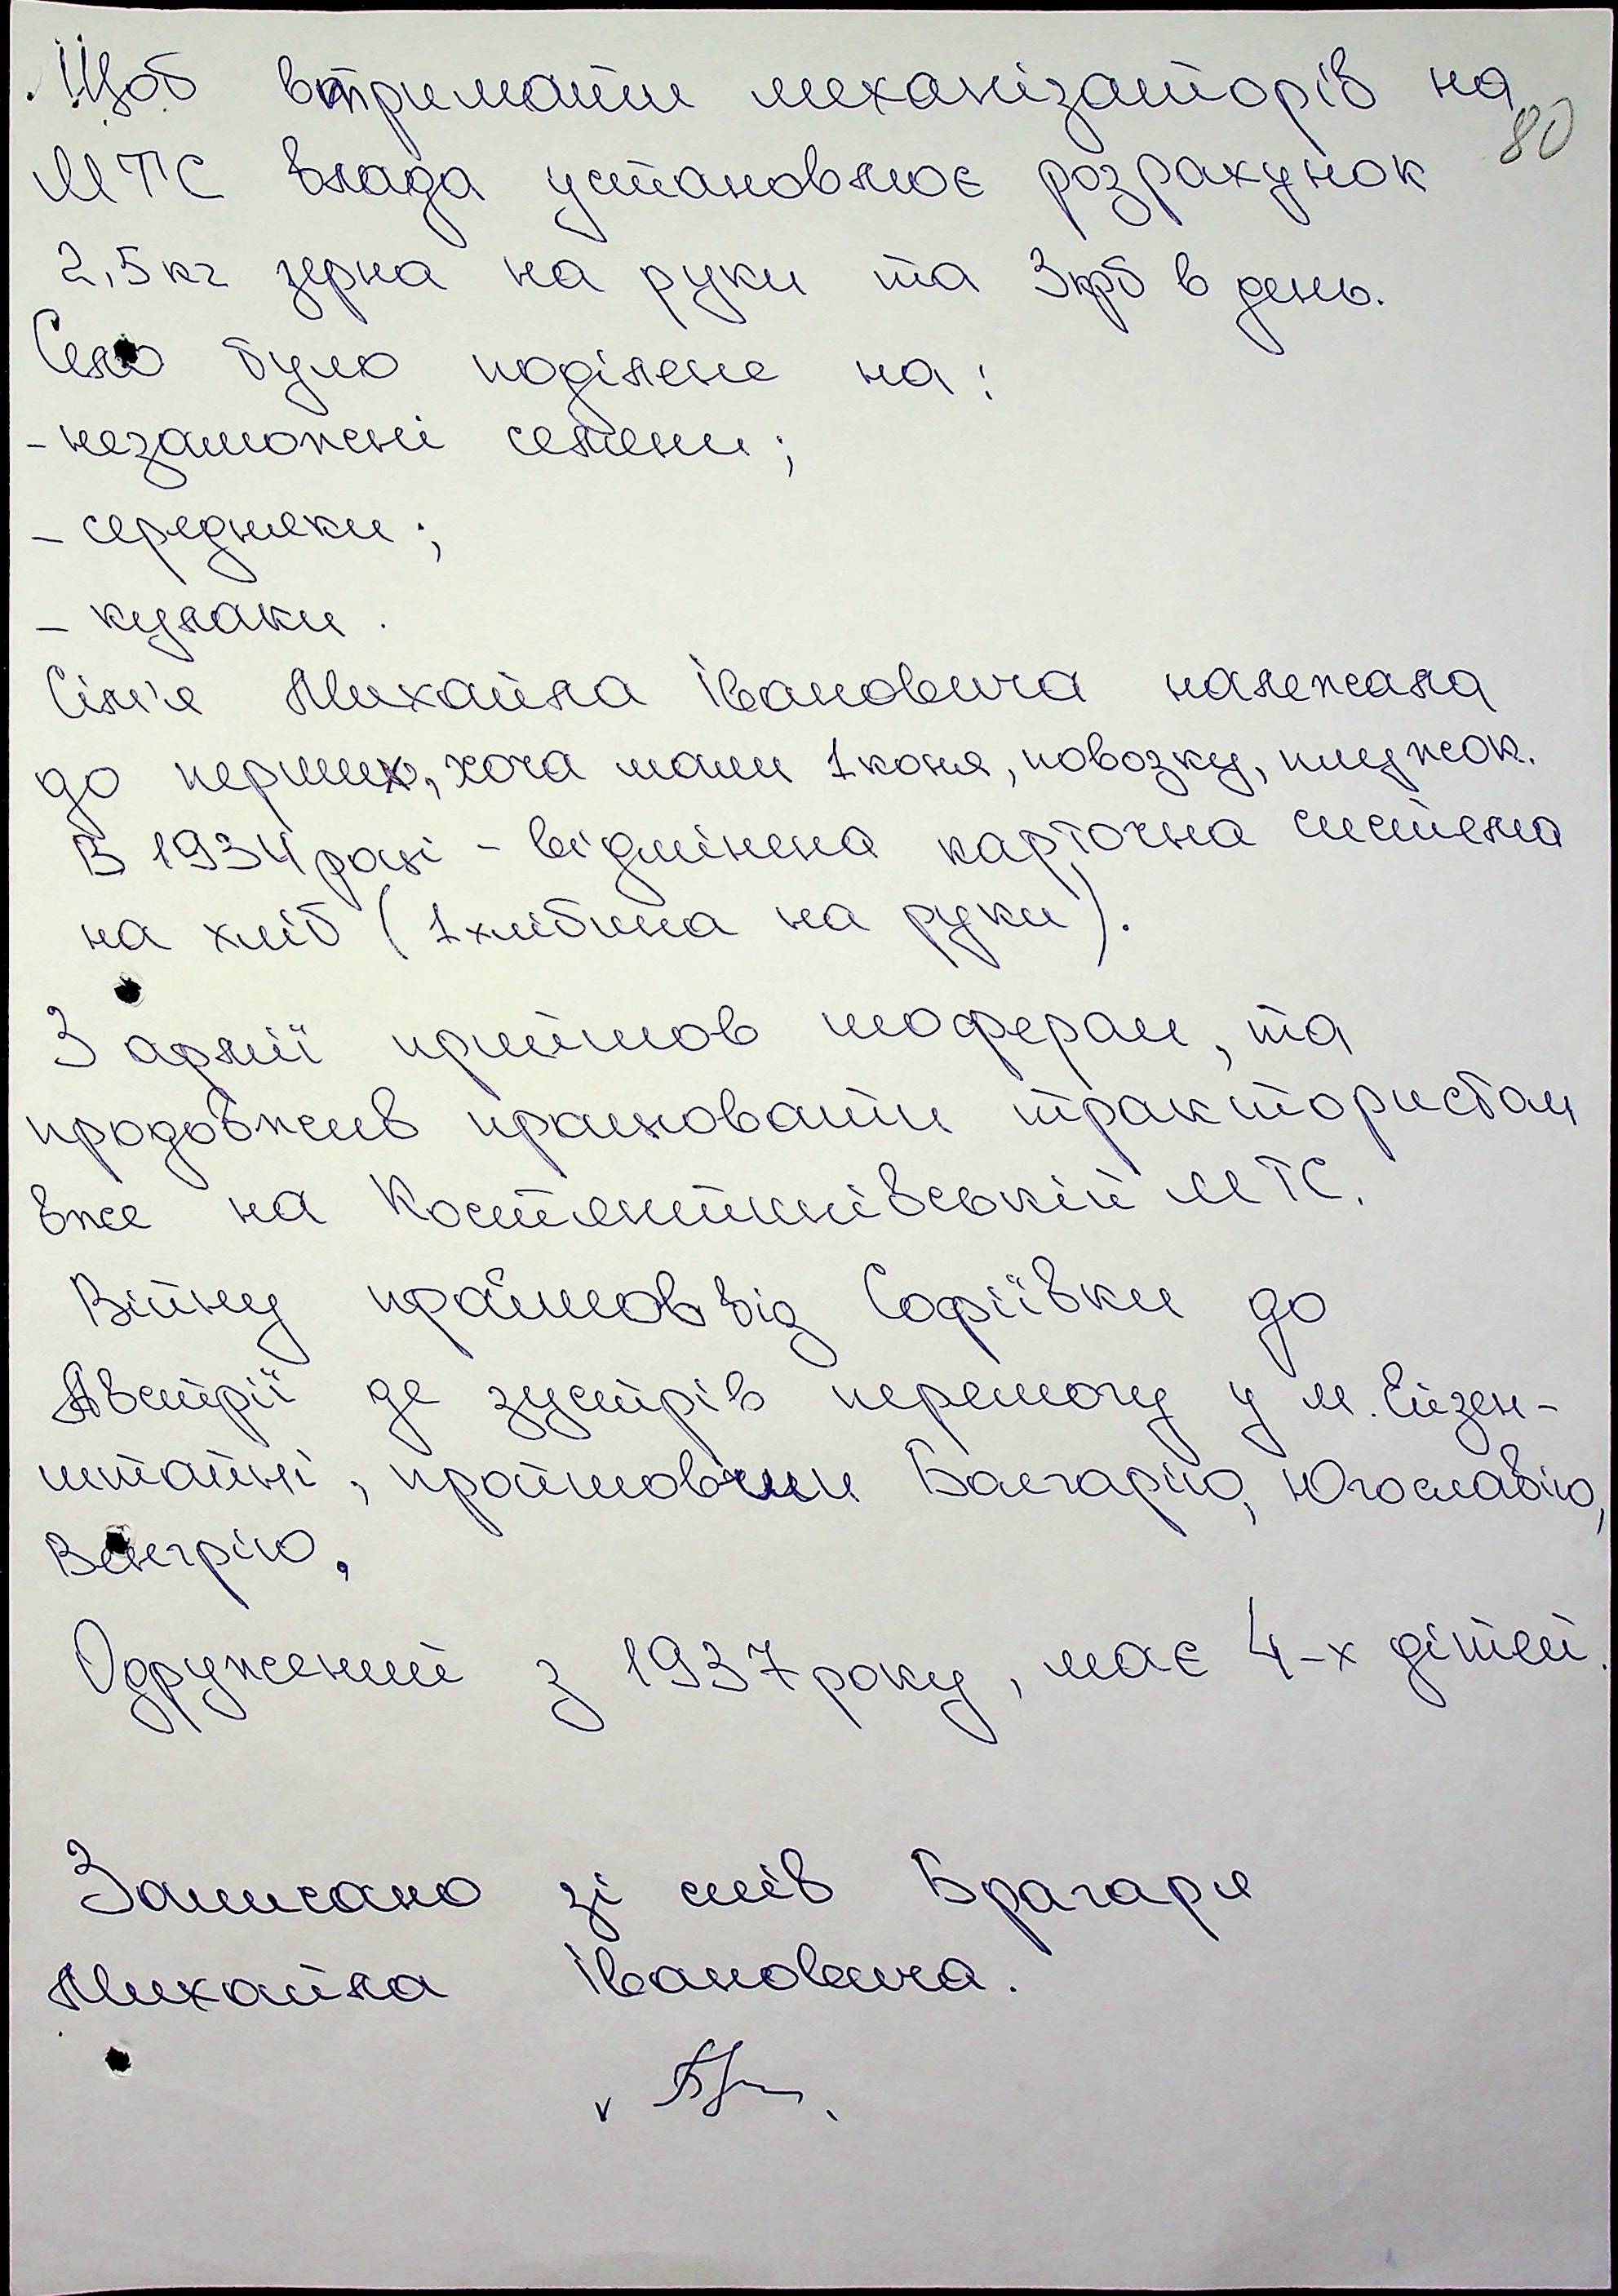 Щоб втримати механізаторів на
80
МТС влада установлює розрахунок
2,5 кг зерна на руки та 3 крб в день.
Село було поділене на:
- незаможні селени;
- середняки;
- кулаки.
Сім'я Михайла Івановича належала
до перших, хоча мали 1 коня, повозку, плужок.
В 1934 році - відмінена карточна система
на хліб (1 хлібина на руки).
З армії прийшов шофером, та
продовжив працювати трактористом
вже на Костянтинівській МТС.
Війну пройшов від Софіївки до
Австрії де зустрів перемогу у м. Ейзен-
штайні, пройшовши Болгарію, Югославію,
Венгрію.
Одружений з 1937 року, має 4-х дітей.
Записано зі слів Брагаря
Михайла Івановича.